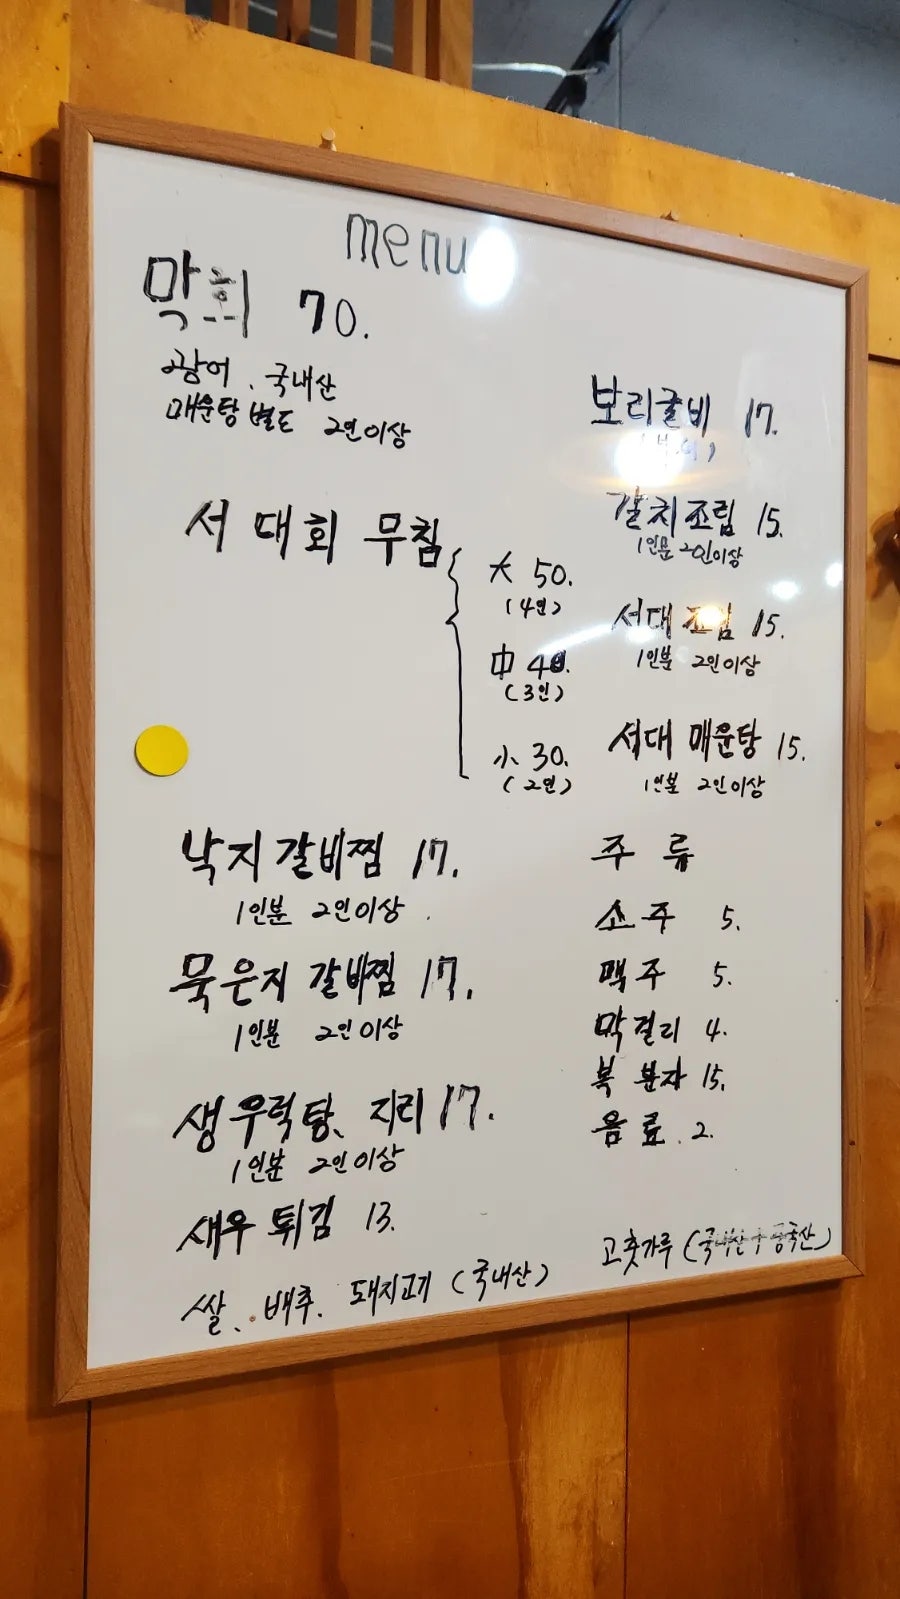 menu
막회 70.
광어. 국내산
매운탕 별도 2인이상
서대회 무침
大 50.
(4인)
中 40.
(3인)
小 30.
(2인)
낙지갈비찜 17.
1인분 2인이상.
묵은지 갈비찜 17.
1인분 2인이상
생우럭탕、지리 17.
1인분 2인이상
새우튀김 13.
쌀、배추. 돼지고기 (국내산)
보리굴비 17.
갈치조림 15.
1인분 2인이상
서대조림 15.
1인분 2인이상
서대 매운탕 15.
1인분 2인이상
주류
소주 5.
맥주 5.
막걸리 4.
복분자 15.
음료. 2.
고춧가루 (국내산+중국산)